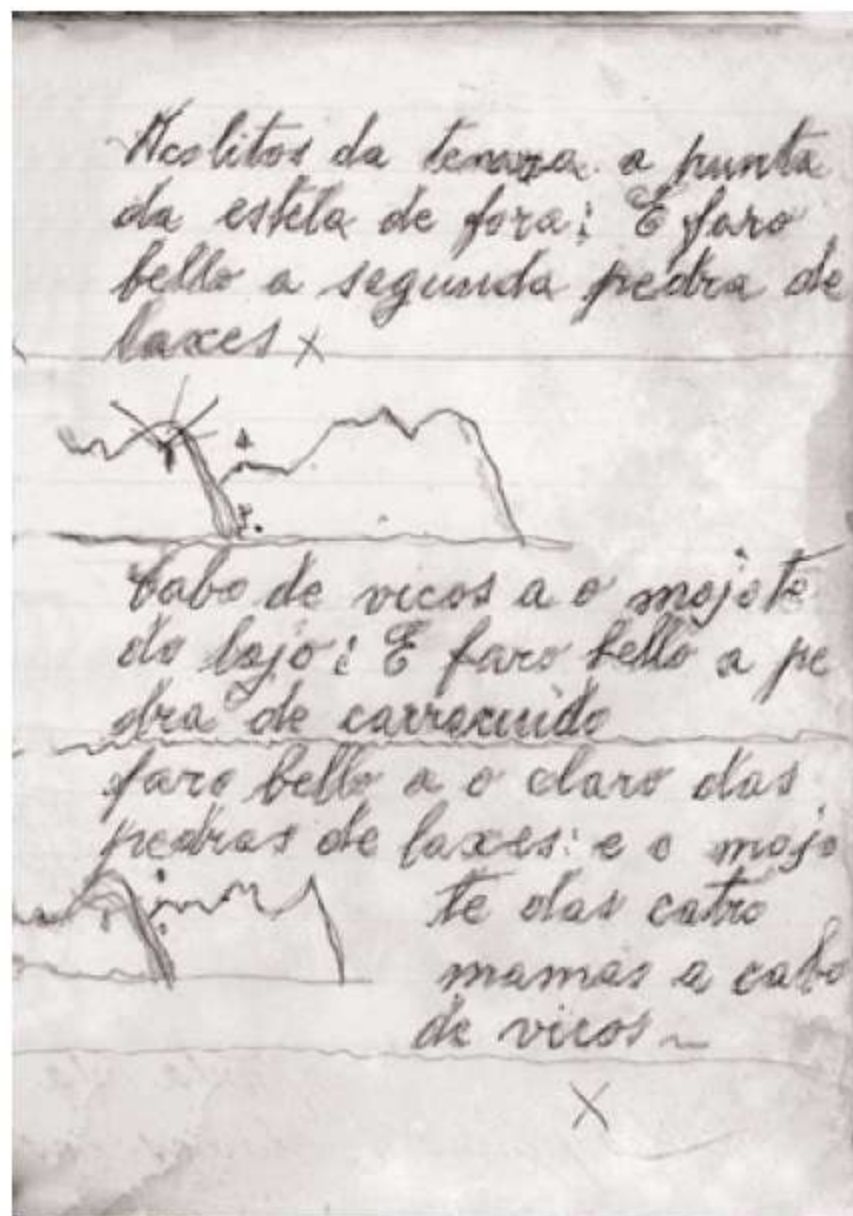 Acolitos da tenaza a punta
da estela de fora; E faro
bello a segunda pedra de
laxes X
Cabo de vicos a o mojote
do bajo; E faro bello a pe
dra de carracuido
faro bello a o claro das
pedras de laxes: e o mojo
te das catro
mamas a cabo
de vicos ~
X